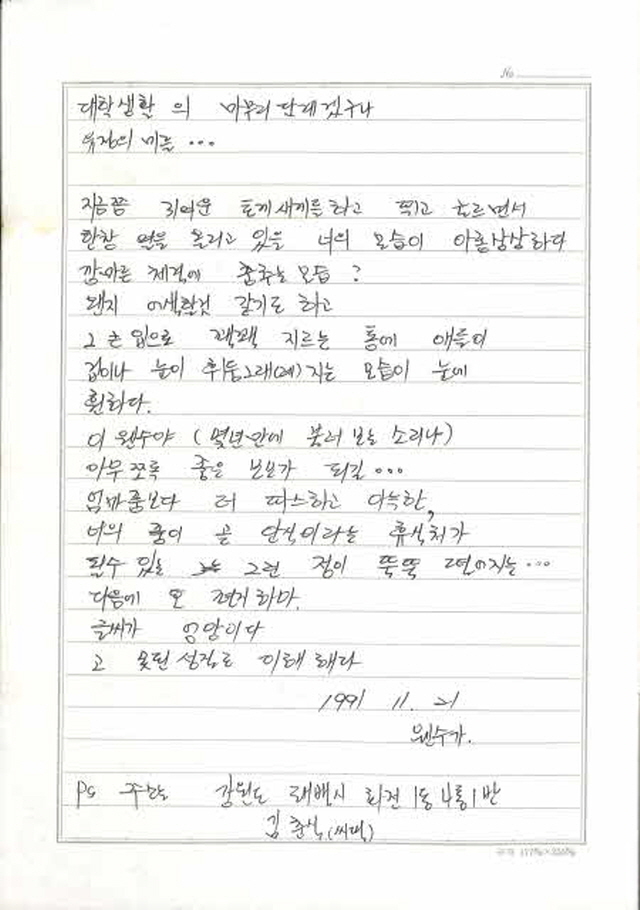 No.
대학생활 의 마무리 단계겠구나
유종의 미를 ...
지금쯤 귀여운 토끼새끼들하고 뛰고 노르면서
한창 열을 올리고 있을 너의 모습이 아른상상하다
깡마른 체격에 춤추는 모습 ?
왠지 어색한것 같기도 하고
그 큰 입으로 꽥꽥 지르는 통에 애들이
겁이나 눈이 휘둥그래(레)지는 모습이 눈에
훤하다.
이 웬수야 ( 몇년만에 불러 보는 소리냐)
아무쪼록 좋은 보모가 되길 ...
엄마품보다 더 따스하고 아늑한,
너의 품이 곧 안식이라는 휴식처가
될수 있는 그런 정이 뚝뚝 떨어지는 ...
다음에 또 편지하마.
글씨가 엉망이다
고 못된 성질로 이해해다
1991 11. 21
웬수가.
PS 주소는 강원도 태백시 화전 1동 4통 1반
김춘식(씨댁)